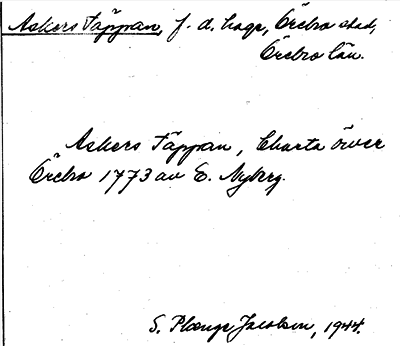 Askers Täppan, f. d. hage, Örebro stad,
Örebro län.
Askers Täppan, Charta över
Örebro 1773 av E. Nyberg.
S. Plænge Jacobson, 1944.